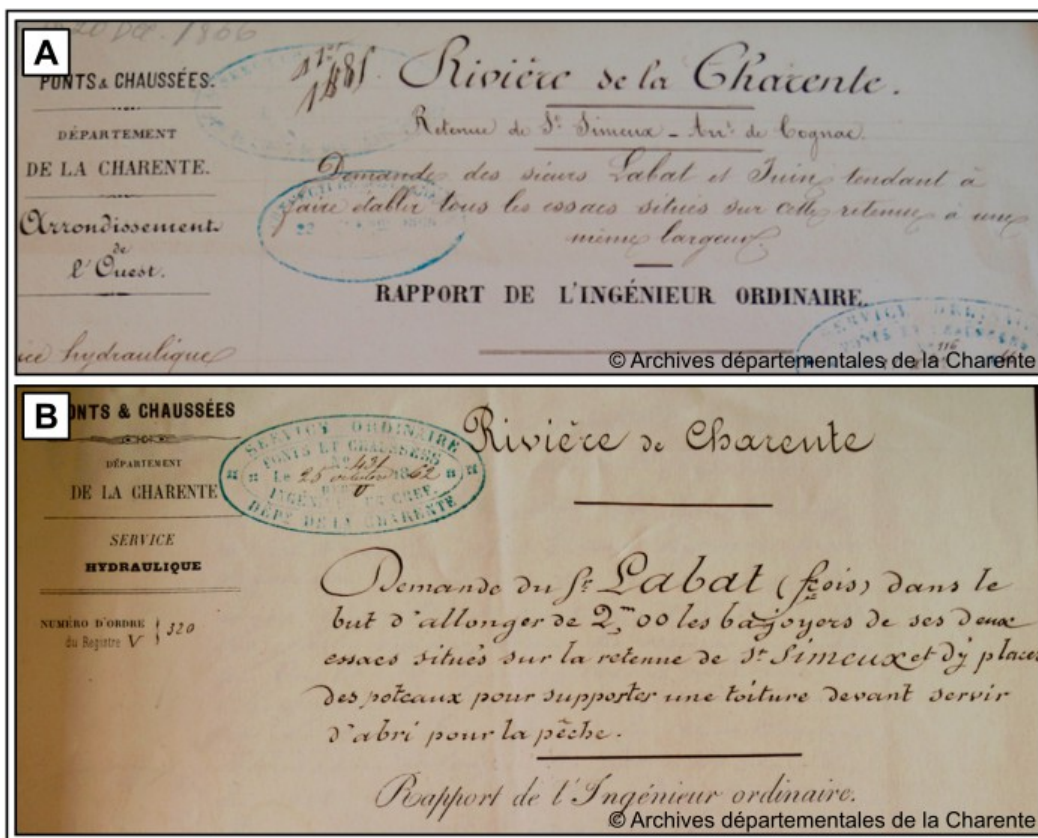 A
20 Dec. 1866
PONTS & CHAUSSÉES.
DÉPARTEMENT
DE LA CHARENTE.
Arrondissement
de
l'Ouest.
Rivière de la Charente.
Retenue de St. Simeux - Arrt. de Cognac.
Demande des sieurs Labat et Juin tendant à
faire établir tous les essacs situés sur cette retenue à une
même largeur.
RAPPORT DE L'INGÉNIEUR ORDINAIRE.
hydraulique
SERVICE ORDINAIRE
116
© Archives départementales de la Charente
B
PONTS & CHAUSSÉES
DÉPARTEMENT
DE LA CHARENTE
SERVICE
HYDRAULIQUE
NUMÉRO D'ORDRE
du Registre V } 320
SERVICE ORDINAIRE
PONTS ET CHAUSSÉES
No 431
Le 25 octobre 1862
INGÉNIEUR EN CHEF
DÉPT. DE LA CHARENTE
Rivière de Charente
Demande du Sr. Labat (fçois) dans le
but d'allonger de 2,m00 les bajoyers de ses deux
essacs situés sur la retenue de St. Simeux et d'y placer
des poteaux pour supporter une toiture devant servir
d'abri pour la pêche.
Rapport de l'Ingénieur ordinaire.
© Archives départementales de la Charente